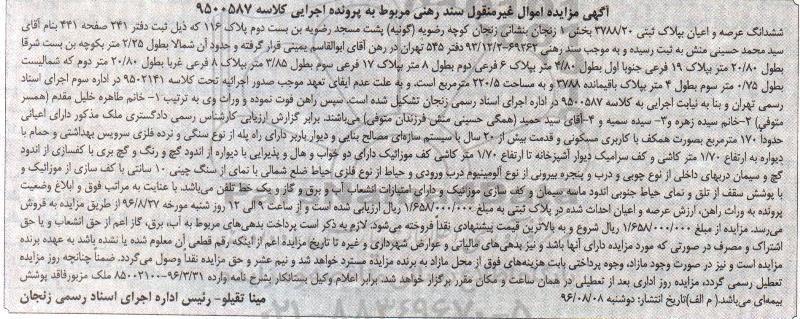 آگهی مزایده اموال غیرمنقول سند رهنی مربوط به پرونده اجرایی کلاسه ۹۵۰۰۵۸۷
ششدانگ عرصه و اعیان بپلاک ثبتی ۳۷۸۸/۲۰ بخش ۱ زنجان بنشانی زنجان کوچه رضویه (گونیه) پشت مسجد رضویه بن بست دوم پلاک ۱۱۶ که ذیل ثبت دفتر ۲۴۱ صفحه ۴۴۱ بنام آقای
سید محمد حسینی منش به ثبت رسیده و به موجب سند رهنی ۶۹۲۶۲-۹۳/۱۲/۲ دفتر ۵۴۵ تهران در رهن آقای ابوالقاسم یمینی قرار گرفته و حدود آن شمالا بطول ۲/۲۵ متر بکوچه بن بست شرقا
بطول ۲۰/۸۰ متر بپلاک ۱۹ فرعی جنوبا اول بطول ۴/۸۰ متر بپلاک ۶ فرعی دوم بطول ۸ متر بپلاک ۱۷ فرعی سوم بطول ۳/۸۵ متر بپلاک ۸ فرعی غربا بطول ۲۰/۸۰ متر دوم که شمالیست
بطول ۰/۷۵ متر سوم بطول ۴ متر بپلاک باقیمانده ۳۷۸۸ و به مساحت ۲۲۰/۵ مترمربع است. و به علت عدم ایفای تعهد موجب صدور اجرائیه تحت کلاسه ۹۵۰۲۱۴۱ در اداره سوم اجرای اسناد
رسمی تهران و بنا به نیابت اجرایی به کلاسه ۹۵۰۰۵۸۷ در اداره اجرای اسناد رسمی زنجان تشکیل شده است. سپس راهن فوت نموده و وراث وی به ترتیب ۱- خانم طاهره خلیل مقدم (همسر
متوفی) ۲-خانم سیده زهره و۳- سیده سمیه و ۴-آقای سید حمید (همگی حسینی منش فرزندان متوفی) می‌باشند. برابر گزارش ارزیابی کارشناس رسمی دادگستری ملک مذکور دارای اعیانی
حدودا ۱۷۰ مترمربع بصورت همکف با کاربری مسکونی و قدمت بیش از ۲۰ سال با سیستم سازه‌ای مصالح بنایی و دیوار باربر دارای راه پله از نوع سنگی و نرده فلزی سرویس بهداشتی و حمام با
دیواره به ارتفاع ۱/۷۰ متر کاشی و کف سرامیک دیوار آشپزخانه تا ارتفاع ۱/۷۰ متر کاشی کف موزائیک دارای دو خواب و هال و پذیرایی با دیواره از اندود گچ و رنگ و گچ بری با کفسازی از اندود
گچ و سیمان دربهای داخلی از نوع چوبی و درب و پنجره بیرونی از نوع آلومینیوم درب ورودی و حیاط از نوع فلزی حیاط ضلع شمالی با نمای از سنگ چینی ۱۰ سانتی با کف سازی از موزائیک و
با پوشش سقف از تلق و نمای حیاط جنوبی اندود ماسه سیمان و کف سازی موزائیک و دارای امتیازات انشعاب آب و برق و گاز و یک خط تلفن می‌باشد. با عنایت به مراتب فوق و ابلاغ وضعیت
پرونده به وراث راهن، ارزش عرصه و اعیان احداث شده در پلاک ثبتی به مبلغ ۱/۶۵۸/۰۰۰/۰۰۰ ریال ارزیابی شده است و از ساعت ۹ الی ۱۲ روز شنبه مورخه ۹۶/۸/۲۷ از طریق مزایده به فروش
می‌رسد. مزایده از مبلغ ۱/۶۵۸/۰۰۰/۰۰۰ ریال شروع و به بالاترین قیمت پیشنهادی نقدا فروخته می‌شود. لازم به ذکر است پرداخت بدهی‌های مربوط به آب، برق، گاز اعم از حق انشعاب و یا حق
اشتراک و مصرف در صورتی که مورد مزایده دارای آنها باشد و نیز بدهی‌های مالیاتی و عوارض شهرداری و غیره تا تاریخ مزایده اعم از اینکه رقم قطعی آن معلوم شده یا نشده باشد به عهده برنده
مزایده است و نیز در صورت وجود مازاد، وجوه پرداختی بابت هزینه‌های فوق از محل مازاد به برنده مزایده مسترد خواهد شد و نیم عشر و حق مزایده نقدا وصول می‌گردد. ضمنا چنانچه روز مزایده
تعطیل رسمی گردد، مزایده روز اداری بعد از تعطیلی در همان ساعت و مکان مقرر برگزار خواهد شد. برابر اعلام وکیل بستانکار بشرح نامه وارده ۹۶/۳/۳۱-۸۵۰۰۲۱۰۰ ملک مزبورفاقد پوشش
بیمه‌ای می‌باشد.( م الف)تاریخ انتشار: دوشنبه ۹۶/۰۸/۰۸
مینا تقیلو- رئیس اداره اجرای اسناد رسمی زنجان
۰۲۱-۸۸۳۴۹۶۷۰-۵